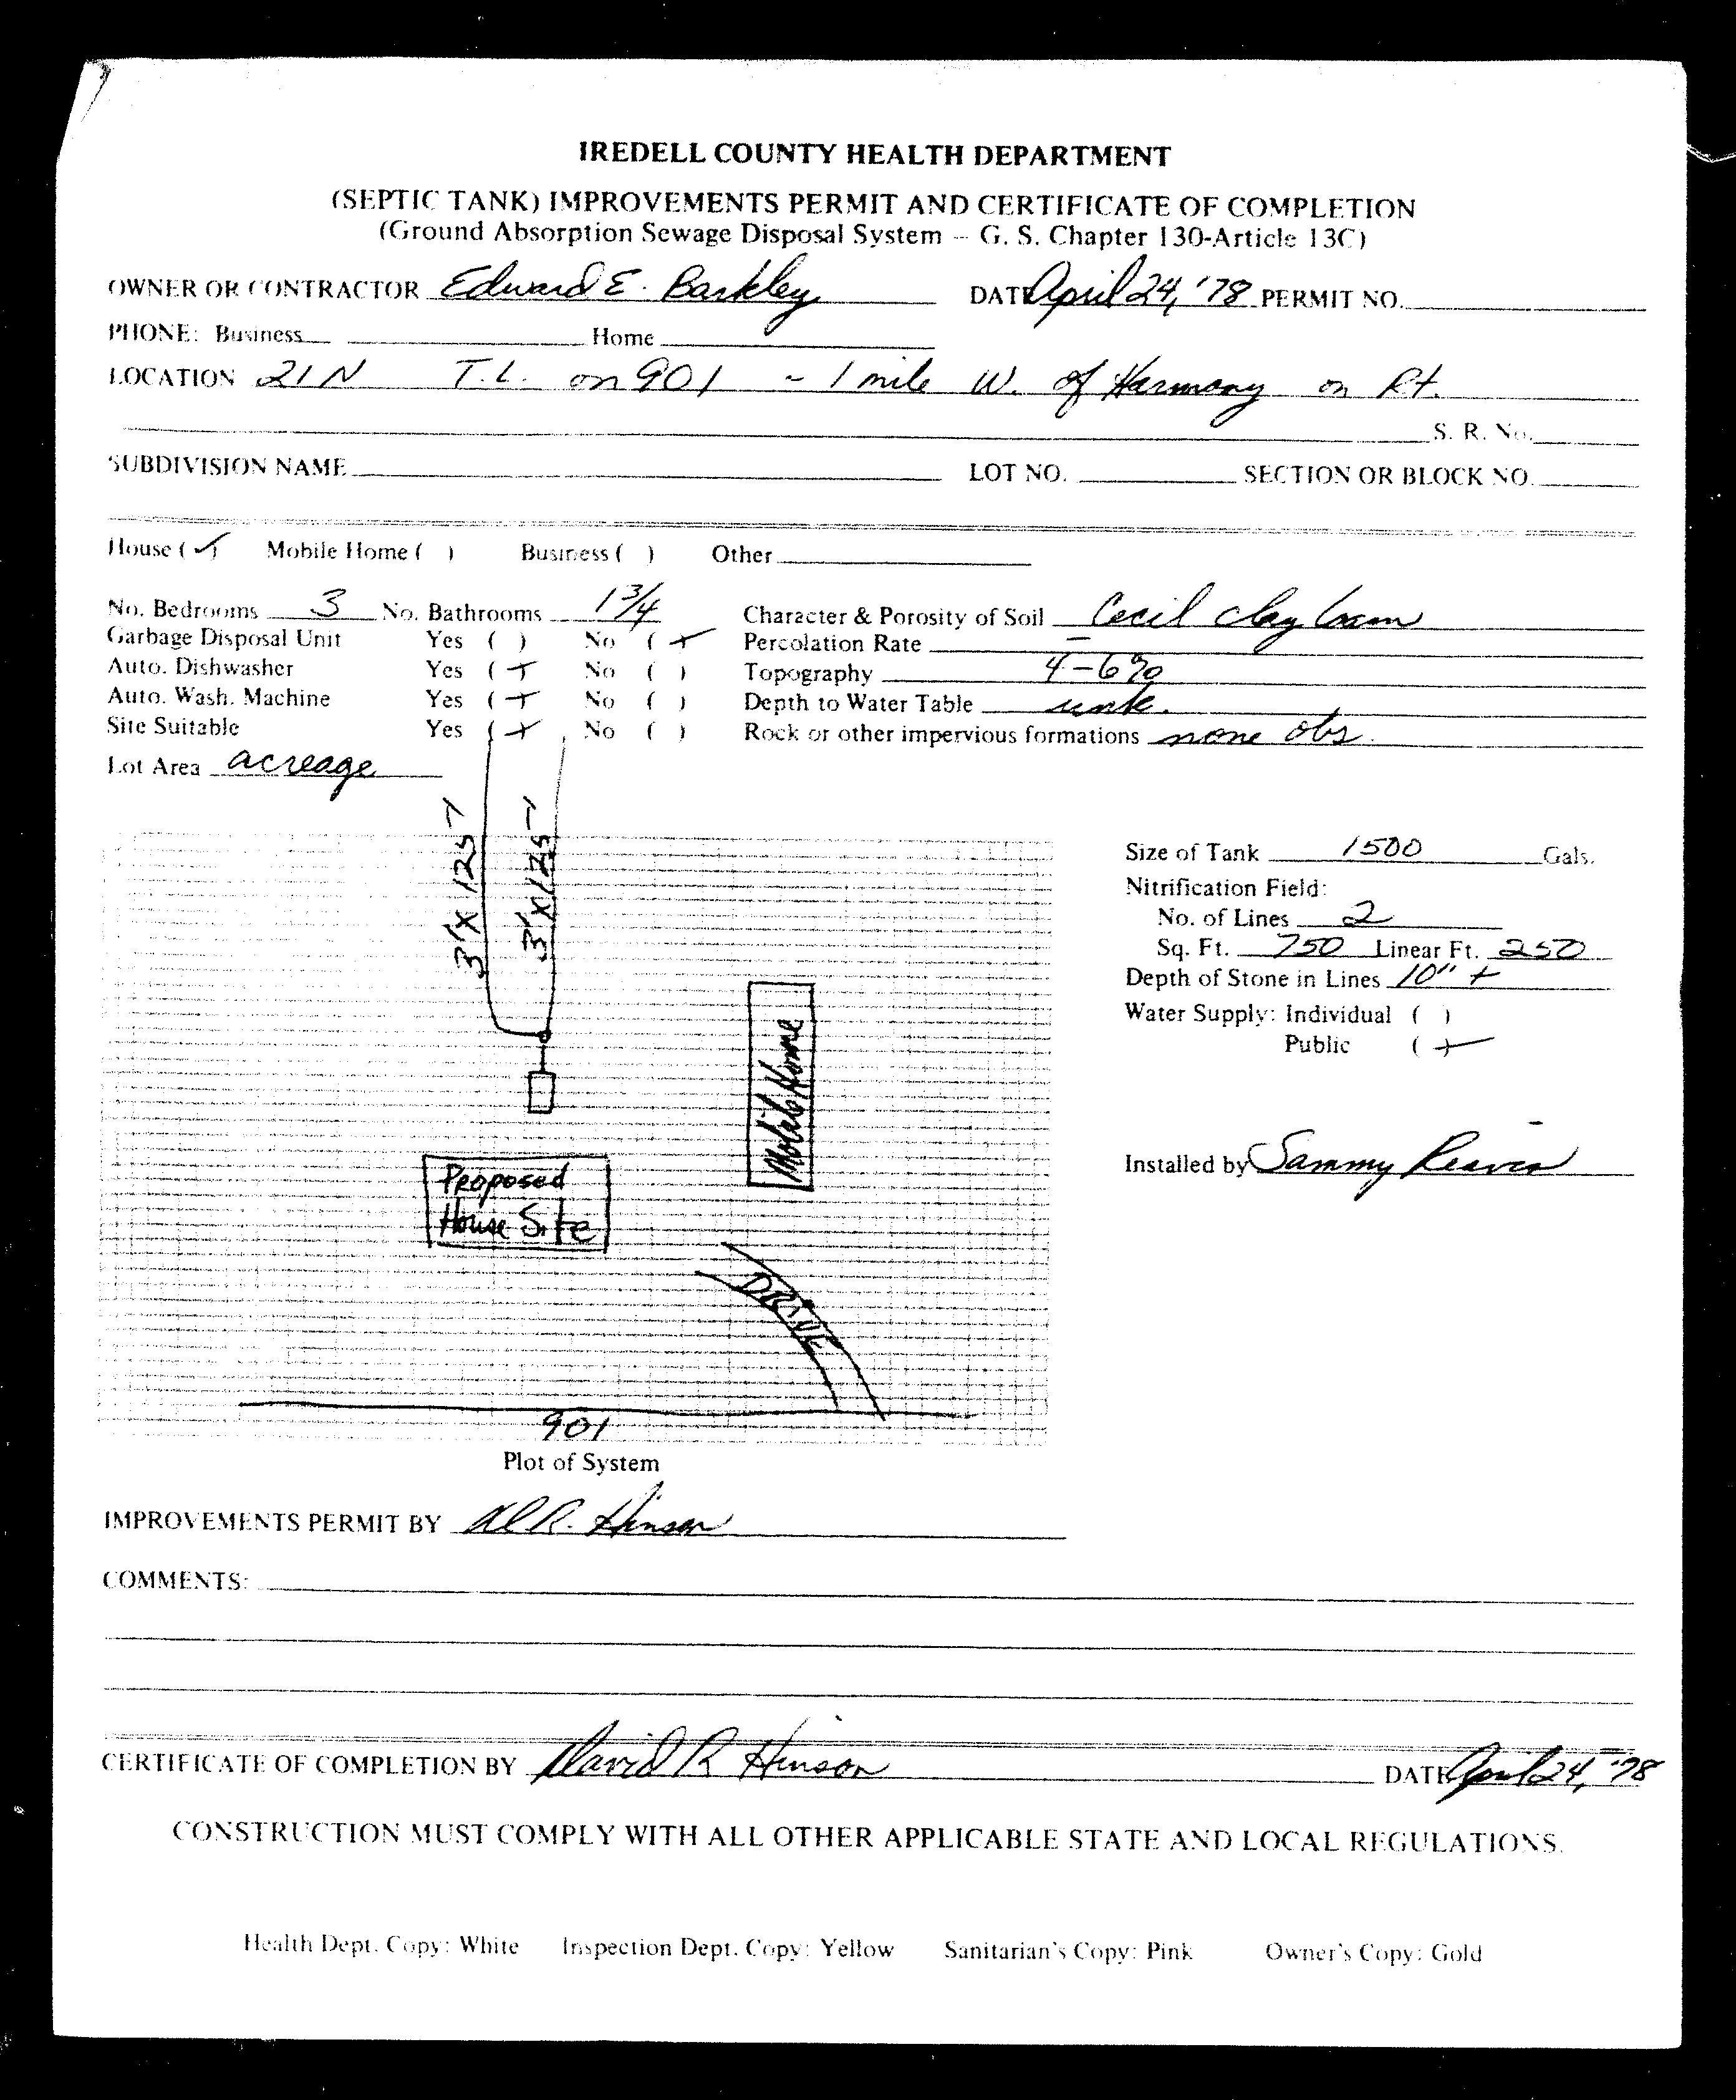 IREDELL COUNTY HEALTH DEPARTMENT
(SEPTIC TANK) IMPROVEMENTS PERMIT AND CERTIFICATE OF COMPLETION
(Ground Absorption Sewage Disposal System – G. S. Chapter 130-Article 13C)
OWNER OR CONTRACTOR Edward E. Barkley DATE April 24, '78 PERMIT NO.
PHONE: Business Home
LOCATION 21 N T.L. on 901 - 1 mile W. of Harmony on Rt.
S. R. No.
SUBDIVISION NAME LOT NO. SECTION OR BLOCK NO.
House (✓) Mobile Home ( ) Business ( ) Other
No. Bedrooms 3 No. Bathrooms 1 3/4 Character & Porosity of Soil Cecil clay loam
Garbage Disposal Unit Yes ( ) No (+) Percolation Rate –
Auto. Dishwasher Yes (+) No ( ) Topography 4-6%
Auto. Wash. Machine Yes (+) No ( ) Depth to Water Table unk.
Site Suitable Yes (+) No ( ) Rock or other impervious formations none obs.
Lot Area acreage
3' X 125'
3' X 125'
Size of Tank 1500 Gals.
Nitrification Field:
No. of Lines 2
Sq. Ft. 750 Linear Ft. 250
Depth of Stone in Lines 10" +
Water Supply: Individual ( )
Public (+)
Mobile Home
Installed by Sammy Reavis
Proposed
House Site
DRIVE
901
Plot of System
IMPROVEMENTS PERMIT BY D.R. Hinson
COMMENTS:
CERTIFICATE OF COMPLETION BY David R Hinson DATE April 24, '78
CONSTRUCTION MUST COMPLY WITH ALL OTHER APPLICABLE STATE AND LOCAL REGULATIONS.
Health Dept. Copy: White Inspection Dept. Copy: Yellow Sanitarian's Copy: Pink Owner's Copy: Gold